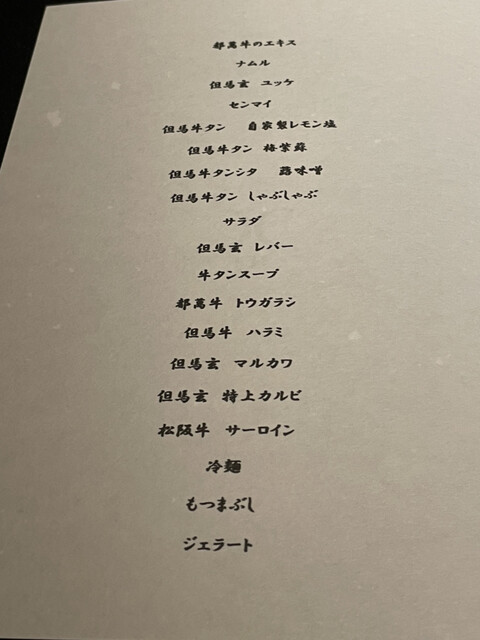 都萬牛のエキス
ナムル
但馬玄 ユッケ
センマイ
但馬牛タン 自家製レモン塩
但馬牛タン 梅紫蘇
但馬牛タンシタ 蕗味噌
但馬牛タン しゃぶしゃぶ
サラダ
但馬玄 レバー
牛タンスープ
都萬牛 トウガラシ
但馬牛 ハラミ
但馬玄 マルカワ
但馬玄 特上カルビ
松阪牛 サーロイン
冷麺
もつまぶし
ジェラート